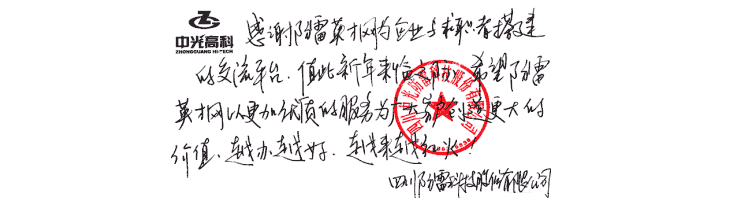 中光高科
ZHONGGUANG HI-TECH
感谢防雷英才网为企业与求职者搭建
的交流平台，值此新年来临之际，希望防雷
英才网以更加优质的服务为广大客户创造更大的
价值，越办越好，越来越红火。
四川中光防雷科技股份有限公司
四川防雷科技股份有限公司